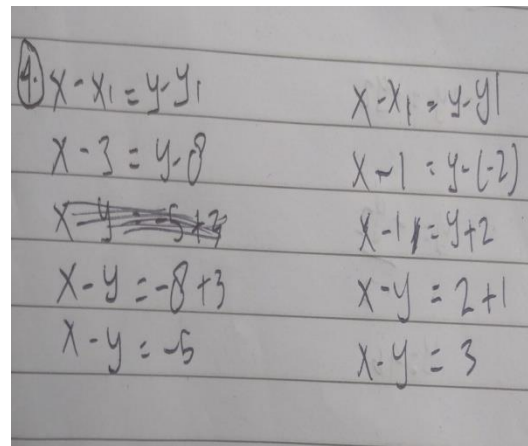 1. x - x₁ = y - y₁
x - 3 = y - 8
x - y = -8 + 3
x - y = -5
x - x₁ = y - y1
x - 1 = y - (-2)
x - 1 = y + 2
x - y = 2 + 1
x - y = 3